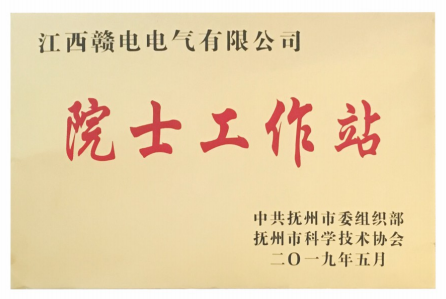 江西赣电电气有限公司
院士工作站
中共抚州市委组织部
抚州市科学技术协会
二〇一九年五月